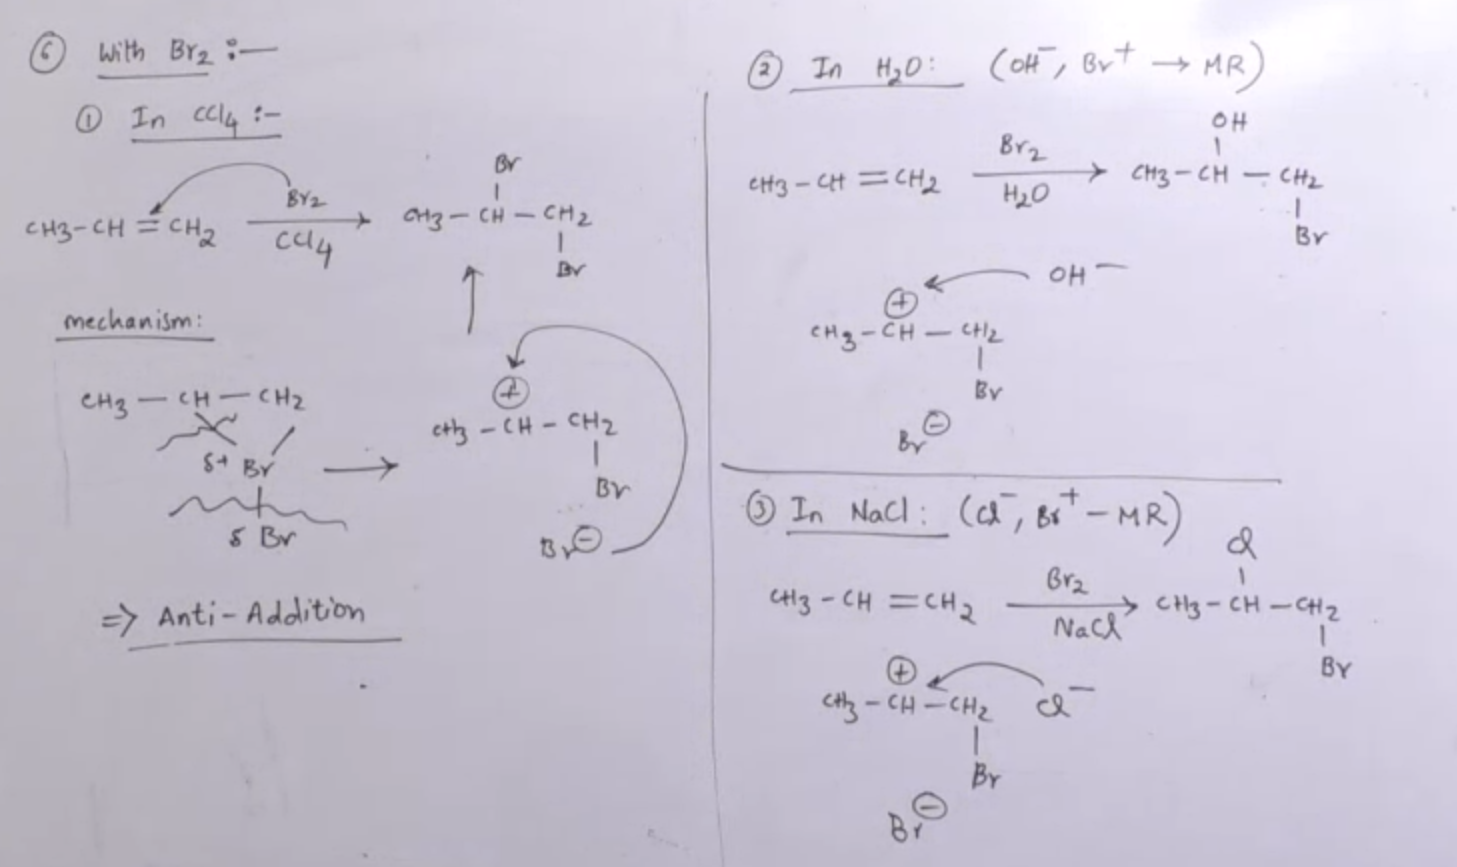 ⑥ With Br₂ :—
① In CCl₄ :-
CH₃-CH=CH₂ Br₂ / CCl₄ → CH₃-CH-CH₂
Br
Br
mechanism:
CH₃-CH-CH₂
δ+ Br
δ Br
→
⊕
CH₃-CH-CH₂
Br
Br⊖
=> Anti-Addition
② In H₂O: (OH⁻, Br⁺ → MR)
OH
CH₃-CH=CH₂ Br₂ / H₂O → CH₃-CH-CH₂
Br
⊕ OH⁻
CH₃-CH-CH₂
Br
Br⊖
③ In NaCl: (Cl⁻, Br⁺ - MR)
Cl
CH₃-CH=CH₂ Br₂ / NaCl → CH₃-CH-CH₂
Br
⊕
CH₃-CH-CH₂ Cl⁻
Br
Br⊖